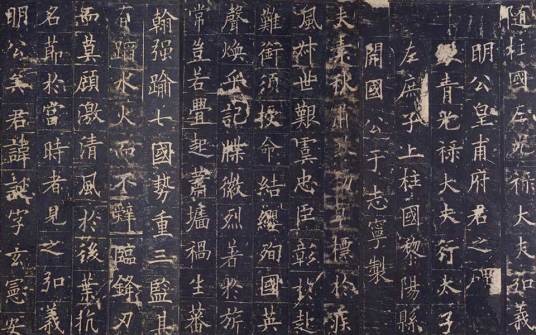 隨柱國左光祿大夫弘義
明公皇甫府君之碑
青光祿大夫行太子
左庶子上柱國黎陽縣
開國公于志寧製
夫素秋肅勁標於疾
風叔世艱虞忠臣彰於赴
難銜須授命結纓殉國英
聲煥乎記牒徽烈著於旂
常豈若舋起蕭墻禍生蕃
翰强踰七國勢重三監其
有蹈水火而不辭臨鋒刃
而莫顧激清風於後葉抗
名節於當時者見之弘義
明公矣君諱誕字玄憲安